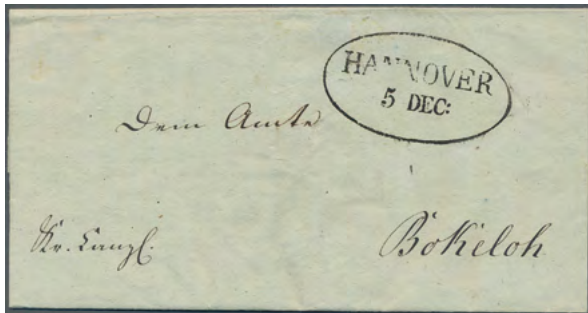 HANNOVER
5 DEC:
Dem Amte
Kr. Canzl.
Bokeloh